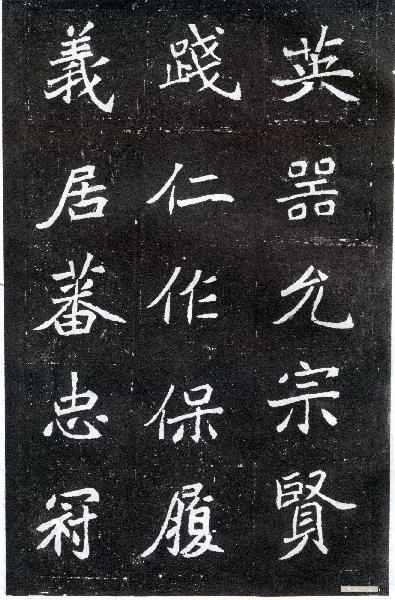 英器允宗賢
踐仁作保履
義居蕃忠冠